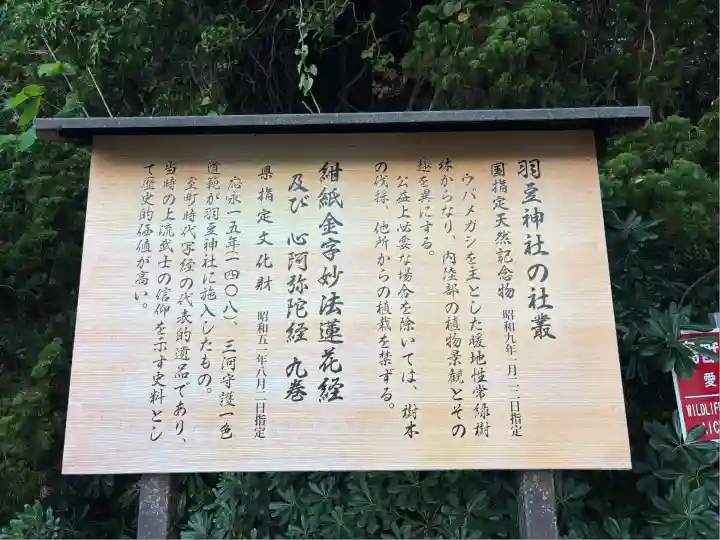 羽豆神社の社叢
国指定天然記念物 昭和九年一月二二日指定
ウバメガシを主とした暖地性常緑樹
林からなり、内陸部の植物景観とその
趣を異にする。
公益上必要な場合を除いては、樹木
の伐採、他所からの植栽を禁ずる。
紺紙金字妙法蓮花経
及び 心阿弥陀経 九巻
県指定文化財 昭和五一年八月二日指定
応永一五年(一四〇八)、三河守護一色
道範が羽豆神社に施入したもの。
室町時代写経の代表的遺品であり、
当時の上流武士の信仰を示す史料とし
て歴史的価値が高い。
愛
WILDLIF